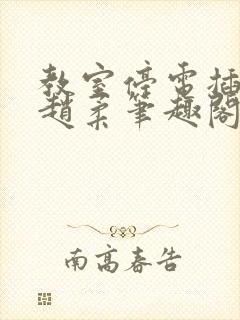 教室停電插
趙柔筆趣閣
南高春告